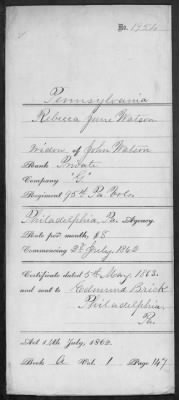 No. 1954
Pennsylvania
Rebecca Jane Watson
Widow of John Watson
Rank Private
Company "G"
Regiment 95th Pa Vols
Philadelphia, Pa. Agency
Rate per month, $8
Commencing 2d July, 1862
Certificate dated 5th May, 1863.
and sent to Edmund Brick
Philadelphia
Pa.
Act 14th July, 1862.
Book A Vol. 1 Page 147